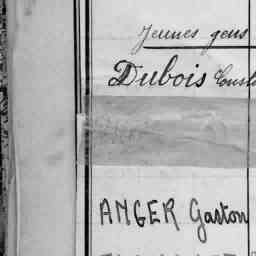 Jeunes gens
Dubois
ANGER Gaston